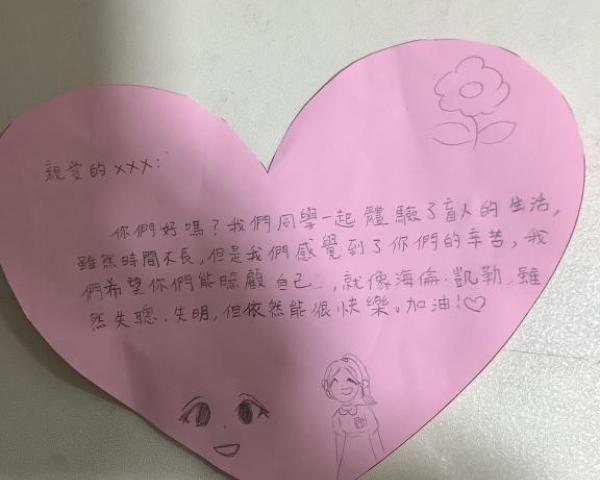 親愛的xxx:
你們好嗎？我們同學一起體驗了盲人的生活，
雖然時間不長，但是我們感覺到了你們的辛苦，我
們希望你們能照顧自己，就像海倫·凱勒，雖
然失聰、失明，但依然能很快樂。加油！♡